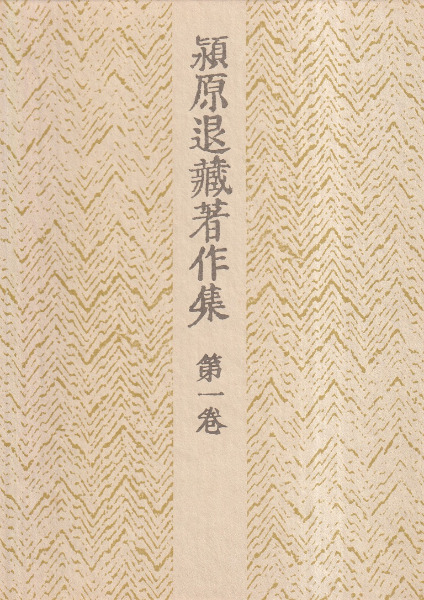 潁原退藏著作集 第一巻